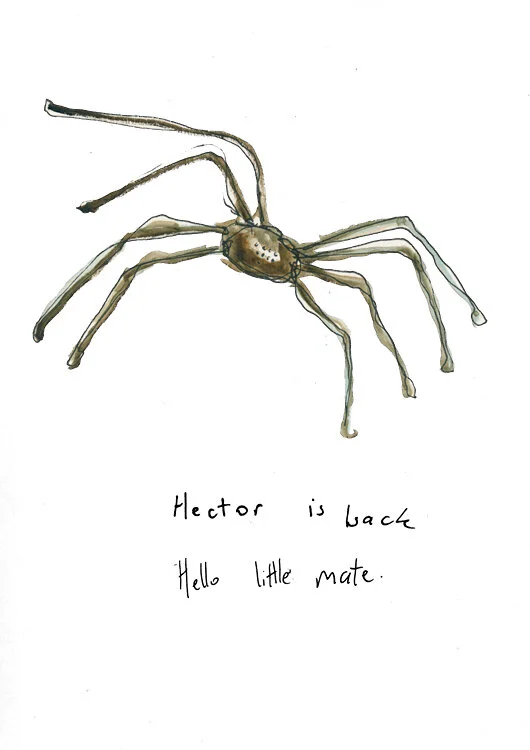 Hector is back
Hello little mate.